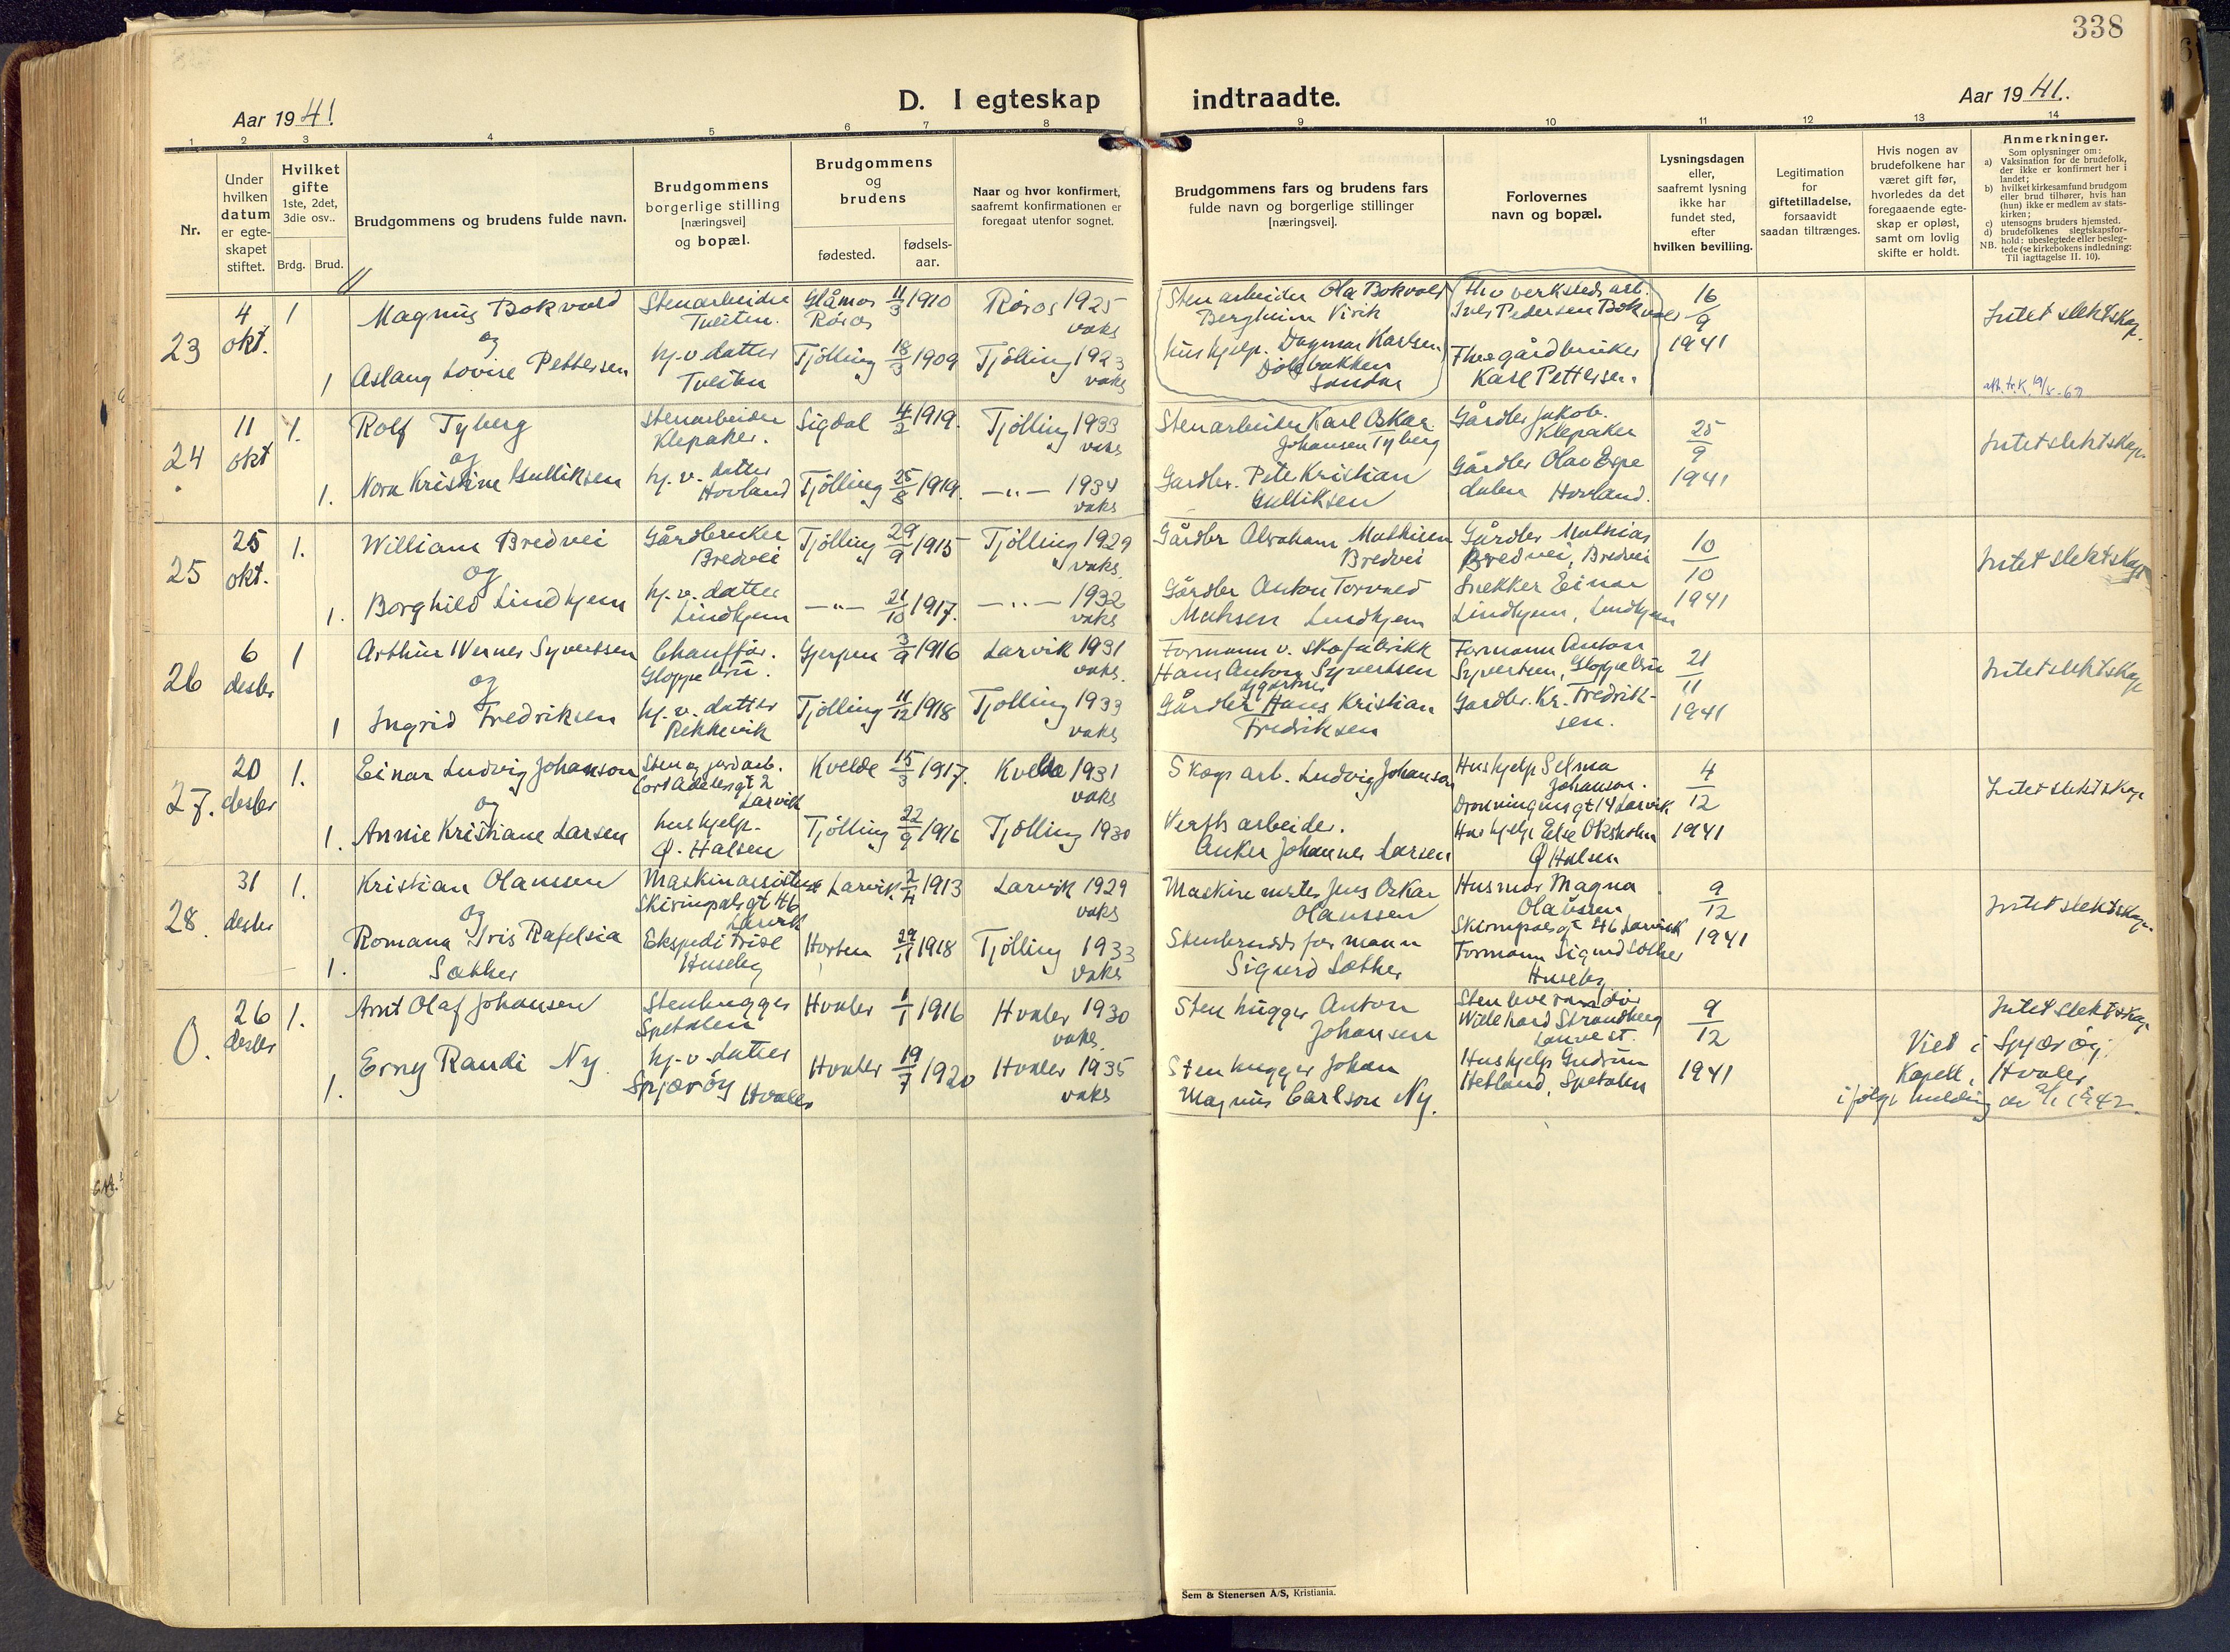 338
D. I egteskap indtraadte.
Aar 1941.
Aar 1941.
1 2 3 4 5 6 7 8 9 10 11 12 13 14
Nr.
Under hvilken datum er egteskapet stiftet.
Hvilket gifte 1ste, 2det, 3die osv..
Brdg. Brud.
Brudgommens og brudens fulde navn.
Brudgommens borgerlige stilling [næringsvei] og bopæl.
Brudgommens og brudens
fødested.
fødsels-aar.
Naar og hvor konfirmert, saafremt konfirmationen er foregaat utenfor sognet.
Brudgommens fars og brudens fars fulde navn og borgerlige stillinger [næringsvei].
Forlovernes navn og bopæl.
Lysningsdagen eller, saafremt lysning ikke har fundet sted, efter hvilken bevilling.
Legitimation for giftetilladelse, forsaavidt saadan tiltrænges.
Hvis nogen av brudefolkene har været gift før, hvorledes da det foregaaende egteskap er opløst, samt om lovlig skifte er holdt.
Anmerkninger.
Som oplysninger om:
a) Vaksination for de brudefolk, der ikke er konfirmert her i landet;
b) hvilket kirkesamfund brudgom eller brud tilhører, hvis han (hun) ikke er medlem av statskirken;
c) utensogns bruders hjemsted.
d) brudefolkenes slegtskapsforhold: ubeslegtede eller beslegtede (se kirkebokens indledning:
NB. Til iagttagelse II. 10).
23
4 okt.
1
Magnus Bokvold
og
1 Aslaug Lovise Pettersen
Stenarbeider
Tveiten.
hj. v. datter
Tveiten
Glåmos Røros 11/3 1910
Tjölling 18/3 1909
Røros 1925 vaks
Tjölling 1923 vaks
Stenarbeider Ola Bokvold
Bergheim Virik
hushjelp. Dagmar Karlsen
Sandar
Fhv verkstedsarb.
Iver Pedersen Bokvold
Fhv gårdbruker
Karl Pettersen.
16/9 1941
Intet slektskap.
24
11 okt
1.
Rolf Tyberg
og
1. Nora Kristine Gulliksen
Stenarbeider
Klepaker.
hj. v. datter
Hovland
Sigdal 4/2 1919.
Tjölling 25/8 1919.
Tjölling 1933 vaks
—"— 1934 vaks
Stenarbeider Karl Oskar
Johansen Tyberg
Gardbr. Peter Kristian
Gulliksen
Gårdbr Jakob
Klepaker
Gårdbr Olav Espe
dalen Hovland.
25/9 1941
Intet slektskap.
25
25 okt.
1.
William Bredvei
og
1. Borghild Lindhjem
Gårdbruker
Bredvei
hj. v. datter
Lindhjem
Tjölling 29/9 1915
—"— 21/10 1917.
Tjölling 1929 vaks.
—"— 1932 vaks
Gårdbr Abraham Mathisen
Bredvei
Gårdbr Anton Torvald
Mathsen Lindhjem
Gårdbr Mathias
Bredvei, Bredvei
Snekker Einar
Lindhjem, Lindhjem
10/10 1941
Intet slektskap
26
6 desbr
1
Arthur Werner Syvertsen
og
1 Ingrid Fredriksen
Chauffør.
Gloppe bru.
hj. v. datter
Rekkevik
Gjerpen 3/9 1916
Tjölling 11/12 1918
Larvik 1931 vaks.
Tjölling 1933 vaks
Formann v. Skofabrikk
Hans Anton Syvertsen
og gartner
Gårdbr Hans Kristian
Fredriksen
Formann Anton
Syvertsen, Gloppebru
Gardbr. Kr. Fredrik-
sen.
21/11 1941
Intet slektskap
27.
20 desbr
1.
Einar Ludvig Johanson
og
1. Annie Kristiane Larsen
Sten og jordarb.
Cort Adelers gt 2
Larvik
hushjelp.
Ø. Halsen
Kvelde 15/3 1917.
Tjölling 22/9 1916
Kvelde 1931 vaks
Tjölling 1930
Skogsarb. Ludvig Johanson
Verftsarbeider.
Anker Johannes Larsen
Hushjelp Selma
Johanson.
Dronningensgt 14 Larvik
Hushjelp Else Oksholm
Ø Halsen
4/12 1941
Intet slektskap
28.
31 desbr
1.
Kristian Olaussen
og
Romana Iris Rafelsia
1. Sæther
Maskinassistent
Skiringsalsgt 46
Larvik
Ekspeditrise
Huseby
Larvik 2/4 1913
Horten 29/11 1918
Larvik 1929 vaks
Tjölling 1933 vaks
Maskinmester Jens Oskar
Olaussen
Stenbruddsformann
Sigurd Sæther
Husmor Magna
Olaussen
Skiringsalsgt 46 Larvik
Formann Sigurd Sæther
Huseby
9/12 1941
Intet slektskap.
0.
26 desbr
1.
Arnt Olaf Johansen
1. Erny Randi Ny.
Stenhugger
Spetalen
hj. v. datter
Spjærøy Hvaler
Hvaler 1/1 1916
Hvaler 19/7 1920
Hvaler 1930 vaks.
Hvaler 1935 vaks
Stenhugger Anton
Johansen
Stenhugger Johan
Magnus Carlson Ny.
Stenleverandør
Willehard Strandberg
Lauve st.
Hushjelp Gudrun
Hetland, Spetalen
9/12 1941
Intet slektskap
Viet i Spjærøy
Kapell, Hvaler
ifølge melding av 2/1 1942.
Sem & Stenersen A/S, Kristiania.